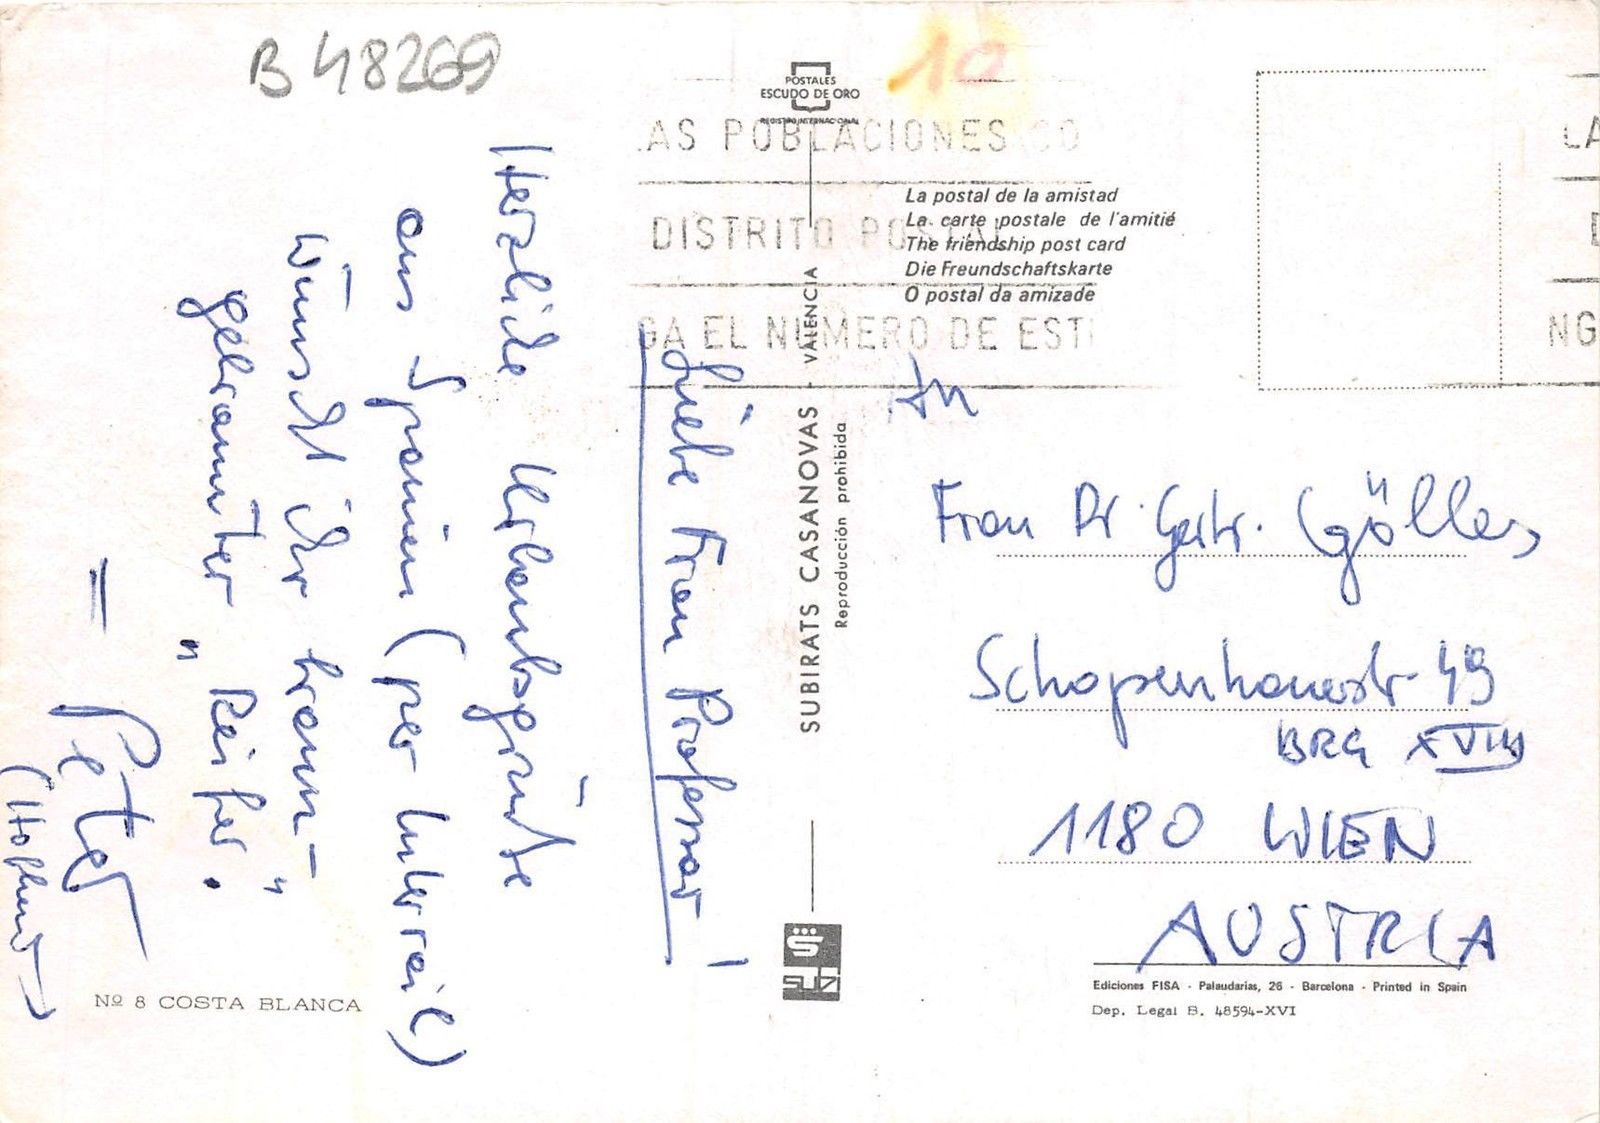 B 48269
10
POSTALES
ESCUDO DE ORO
REGISTRO INTERNACIONAL
LAS POBLACIONES CO
DISTRITO POSTAL
GA EL NUMERO DE ESTE
LA
D
NG
La postal de la amistad
La carte postale de l'amitié
The friendship post card
Die Freundschaftskarte
O postal da amizade
Liebe Frau Professor!
Herzliche Urlaubsgrüße
aus Spanien (per Interrail)
wünscht ihr braun-
gebrannter "Reifer".
Peter
SUBIRATS CASANOVAS - VALENCIA
Reproducción prohibida
An
Frau Dr. Gertr. Göller
Schopenhauerstr 49
BRG XVIII
1180 WIEN
AUSTRIA
Ediciones FISA - Palaudarias, 26 - Barcelona - Printed in Spain
Dep. Legal B. 48594-XVI
Nº 8 COSTA BLANCA